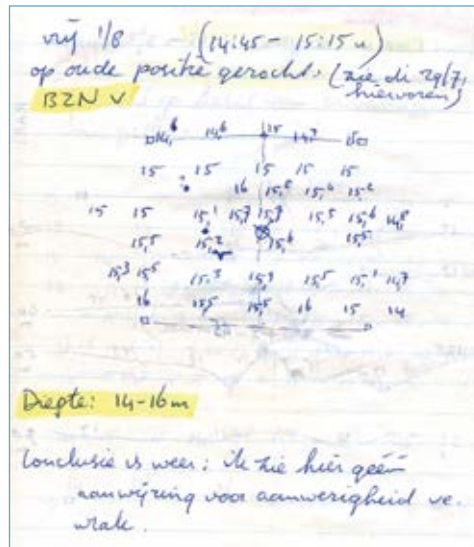 vrij 1/8 (14:45 – 15:15 u)
op oude positie gezocht. (zie di 29/7, hiervoren)
BZN V
14,6 14,6 15 14,7 15
15 15 15 15 15
16 15,8 15,4 15,2
15 15 15,1 15,7 15,7 15,5 15,6 14,8
15,5 15,2 15,6 15,5
15,3 15,5 15,3 15,9 15,5 15,1 14,7
16 15,5 15,5 16 15 14
Diepte: 14-16m
Conclusie is weer: ik zie hier géén
aanwijzing voor aanwezigheid v.e.
wrak.